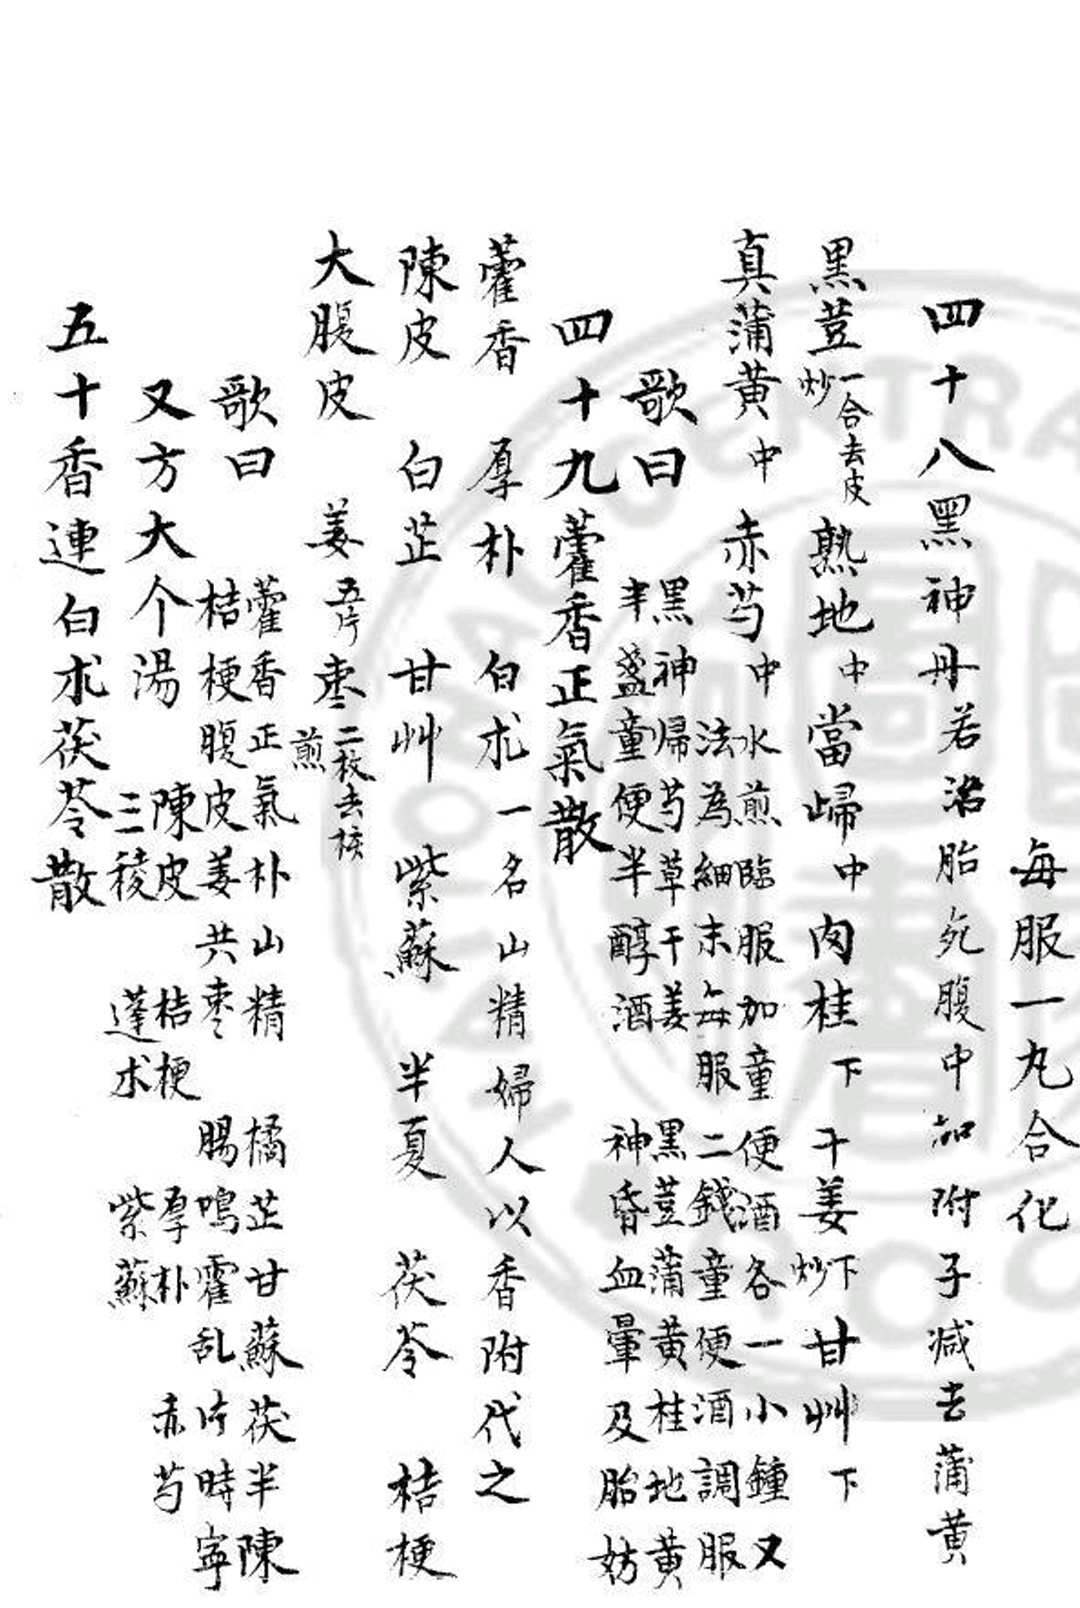 每服一丸合化
四十八黑神丹若治胎死腹中加附子减去蒲黄
黑荳一合去皮炒熟地中當歸中肉桂下干姜下炒甘艸下
真蒲黄中赤芍中水煎臨服加童便酒各一小鍾又
法為細末每服二錢童便酒調服
歌曰黑神歸芍草干姜黑荳蒲黄桂地黄
半盞童便半醇酒神昏血暈及胎妨
四十九藿香正氣散
藿香厚朴白朮一名山精婦人以香附代之
陳皮白芷甘艸紫蘇半夏茯苓桔梗
大腹皮姜五片棗二枚去核煎
歌曰藿香正氣朴山精橘芷甘蘇茯半陳
桔梗腹皮姜共棗腸鳴霍乱片時寧
又方大个湯陳皮桔梗厚朴赤芍
三稜蓬朮紫蘇
五十香連白朮茯苓散